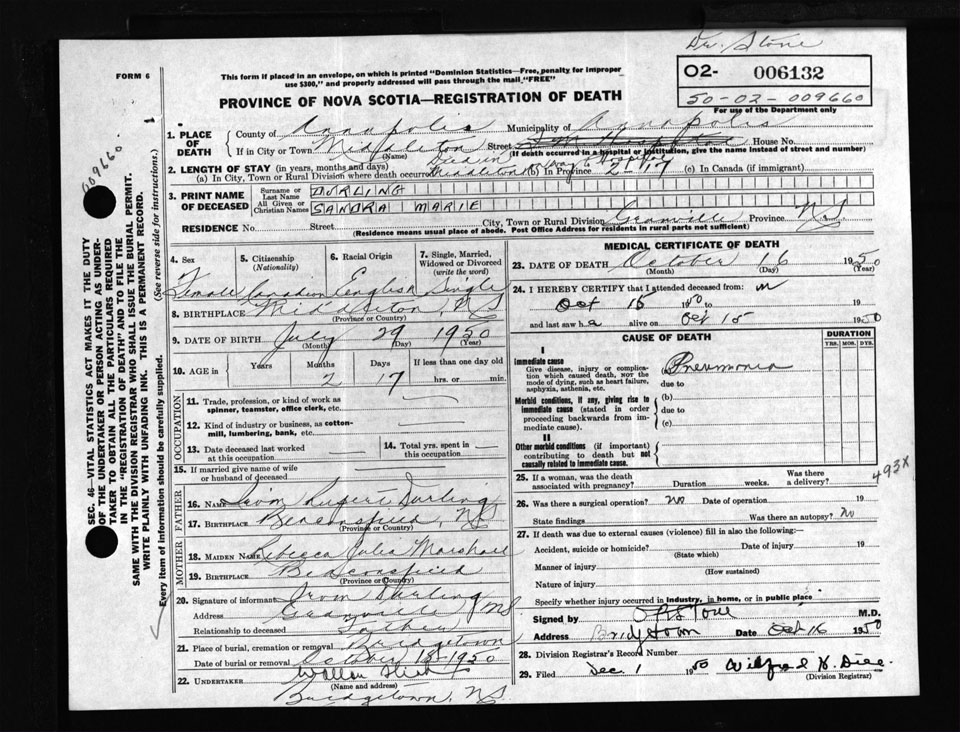 Dr. Stone
FORM 6
This form if placed in an envelope, on which is printed "Dominion Statistics—Free, penalty for improper
use $300," and properly addressed will pass through the mail "FREE"
O2- 006132
50-02-009660
For use of the Department only
PROVINCE OF NOVA SCOTIA—REGISTRATION OF DEATH
009660
SEC. 46—VITAL STATISTICS ACT MAKES IT THE DUTY
OF THE UNDERTAKER OR PERSON ACTING AS UNDER-
TAKER TO OBTAIN ALL THE PARTICULARS REQUIRED
IN THE "REGISTRATION OF DEATH" AND TO FILE THE
SAME WITH THE DIVISION REGISTRAR WHO SHALL ISSUE THE BURIAL PERMIT.
WRITE PLAINLY WITH UNFADING INK. THIS IS A PERMANENT RECORD.
Every item of information should be carefully supplied. (See reverse side for instructions.)
1. PLACE OF DEATH County of Annapolis Municipality of Annapolis
If in City or Town Middleton (Name) Street House No.
(If death occurred in a hospital or institution, give the name instead of street and number)
2. LENGTH OF STAY (in years, months and days)
(a) In City, Town or Rural Division where death occurred Middleton (b) In Province 2-17 (c) In Canada (if immigrant)
3. PRINT NAME OF DECEASED Surname or Last Name DURLING
All Given or Christian Names SANDRA MARIE
RESIDENCE No. Street City, Town or Rural Division Granville Province N.S.
(Residence means usual place of abode. Post Office Address for residents in rural parts not sufficient)
4. Sex 5. Citizenship (Nationality) 6. Racial Origin 7. Single, Married, Widowed or Divorced (write the word)
Female Canadian English Single
8. BIRTHPLACE Middleton, NS
(Province or Country)
9. DATE OF BIRTH July 29 1950
(Month) (Day) (Year)
10. AGE in Years Months Days If less than one day old
2 17 hrs. or min.
OCCUPATION
11. Trade, profession, or kind of work as spinner, teamster, office clerk, etc.
12. Kind of industry or business, as cotton-mill, lumbering, bank, etc.
13. Date deceased last worked at this occupation 14. Total yrs. spent in this occupation
15. If married give name of wife or husband of deceased
FATHER
16. NAME Rupert Durling
17. BIRTHPLACE Beaconsfield, NS
(Province or Country)
MOTHER
18. MAIDEN NAME Rebecca Julia Marshall
19. BIRTHPLACE Beaconsfield
(Province or Country)
20. Signature of informant Durling
Address Granville NS
Relationship to deceased Father
21. Place of burial, cremation or removal Bridgetown
Date of burial or removal October 18-1950
22. UNDERTAKER
(Name and address)
Bridgetown, NS.
MEDICAL CERTIFICATE OF DEATH
23. DATE OF DEATH October 16 1950
(Month) (Day) (Year)
24. I HEREBY CERTIFY that I attended deceased from:
Oct 15 1950 to 19
and last saw h alive on Oct 15 1950
CAUSE OF DEATH DURATION
YRS. MOS. DYS.
I
Immediate cause
Give disease, injury or complication which caused death, NOT the mode of dying, such as heart failure, asphyxia, asthenia, etc.
(a) Pneumonia
due to
Morbid conditions, if any, giving rise to immediate cause (stated in order proceeding backwards from immediate cause).
(b)
due to
(c)
II
Other morbid conditions (if important) contributing to death but not causally related to immediate cause.
493X
25. If a woman, was the death associated with pregnancy? Duration weeks. Was there a delivery?
26. Was there a surgical operation? No Date of operation 19
State findings Was there an autopsy? No
27. If death was due to external causes (violence) fill in also the following:—
Accident, suicide or homicide? Date of injury 19
(State which)
Manner of injury
(How sustained)
Nature of injury
Specify whether injury occurred in industry, in home, or in public place
Signed by Stone M.D.
Address Bridgetown Date Oct 16 1950
28. Division Registrar's Record Number
29. Filed Dec 1 1950 Wilfred
(Division Registrar)